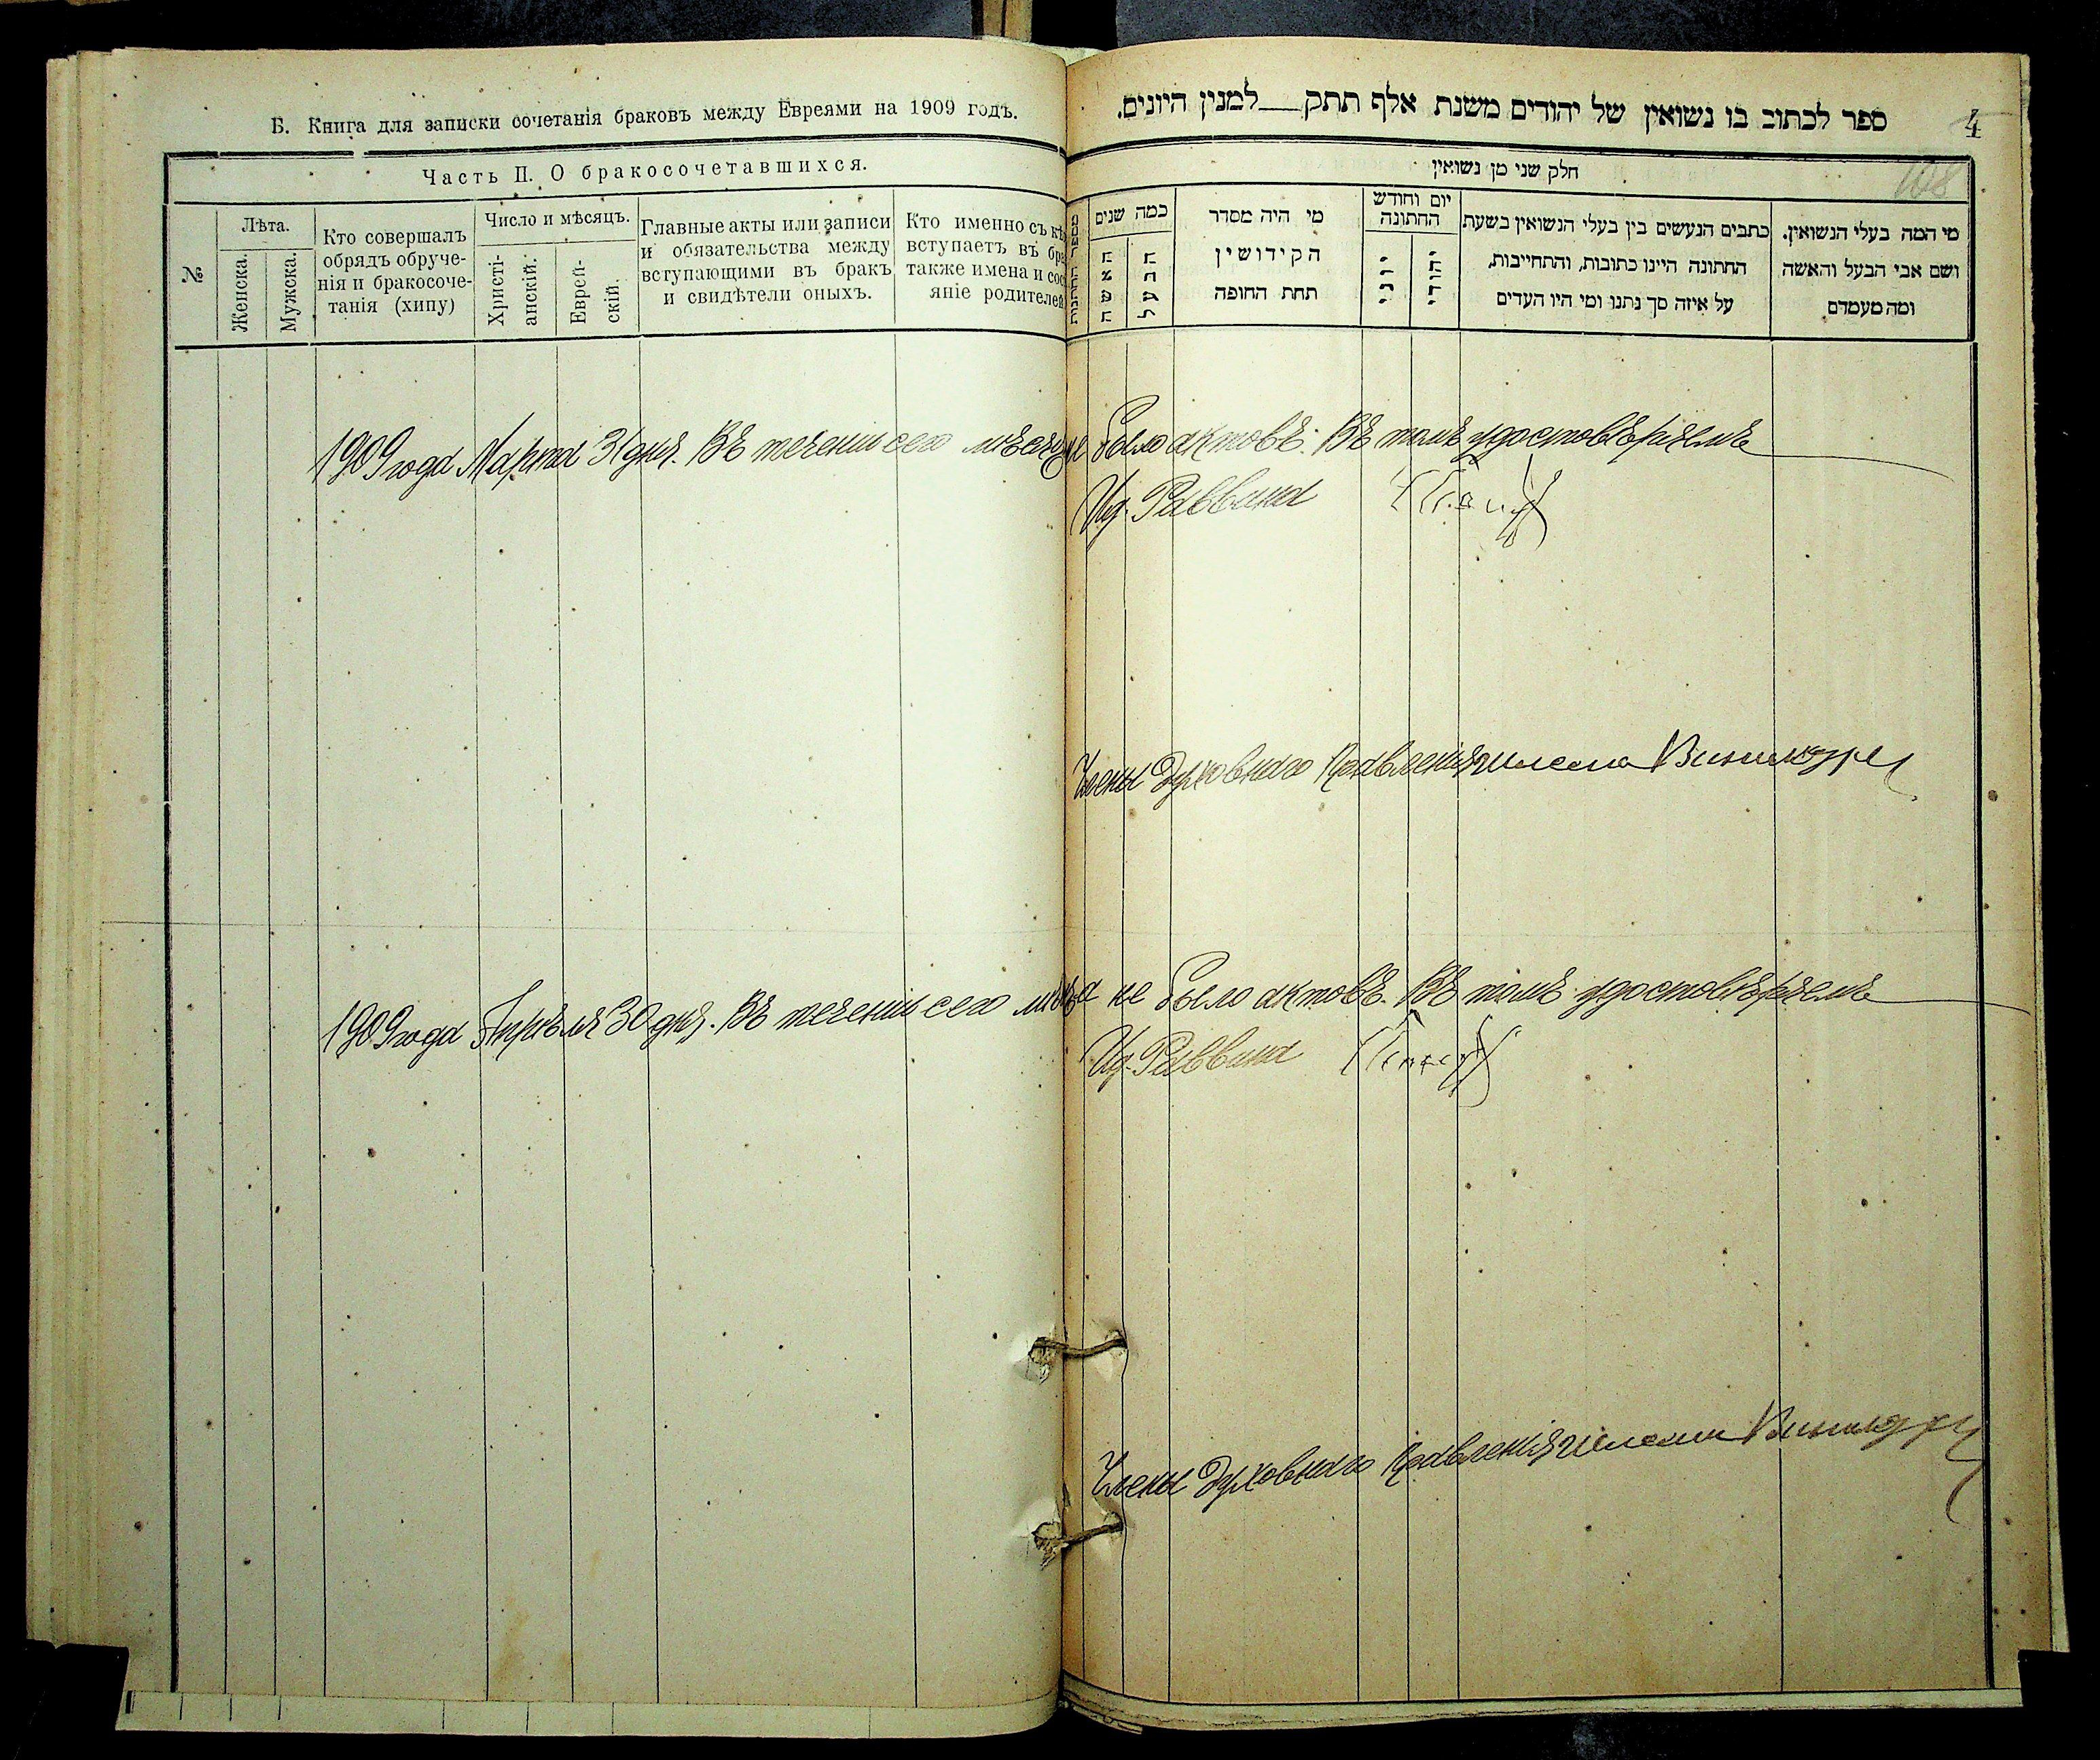 Б. Книга для записки сочетанія браковъ между Евреями на 1909 годъ.
Часть II. О бракосочетавшихся.
№
Лѣта.
Женска.
Мужска.
Кто совершалъ
обрядъ обруче-
нія и бракосоче-
танія (хипу)
Число и мѣсяцъ.
Христі-
анскій.
Еврей-
скій.
Главные акты или записи
и обязательства между
вступающими въ бракъ
и свидѣтели оныхъ.
Кто именно съ кѣ
вступаетъ въ бра
также имена и сос
яніе родителей
ספר לכתוב בו נשואין של יהודים משנת אלף תתק למנין היונים.
4
108
חלק שני מן נשואין
מספר החתונות
כמה שנים
האשה
הבעל
מי היה מסדר
הקידושין
תחת החופה
יום וחודש
החתונה
יוני
יהודי
כתבים הנעשים בין בעלי הנשואין בשעת
החתונה היינו כתובות, והתחייבות,
על איזה סך נתנו ומי היו העדים
מי המה בעלי הנשואין.
ושם אבי הבעל והאשה
ומה מעמדם
1909 года Марта 31 дня. Въ теченіи сего мѣсяца не было актовъ. Въ томъ удостовѣряемъ
Ид. Раввина
Члены Духовнаго Правленія
1909 года Апрѣля 30 дня. Въ теченіи сего мѣсяца не было актовъ. Въ томъ удостовѣряемъ
Ид. Раввина
Члены Духовнаго Правленія